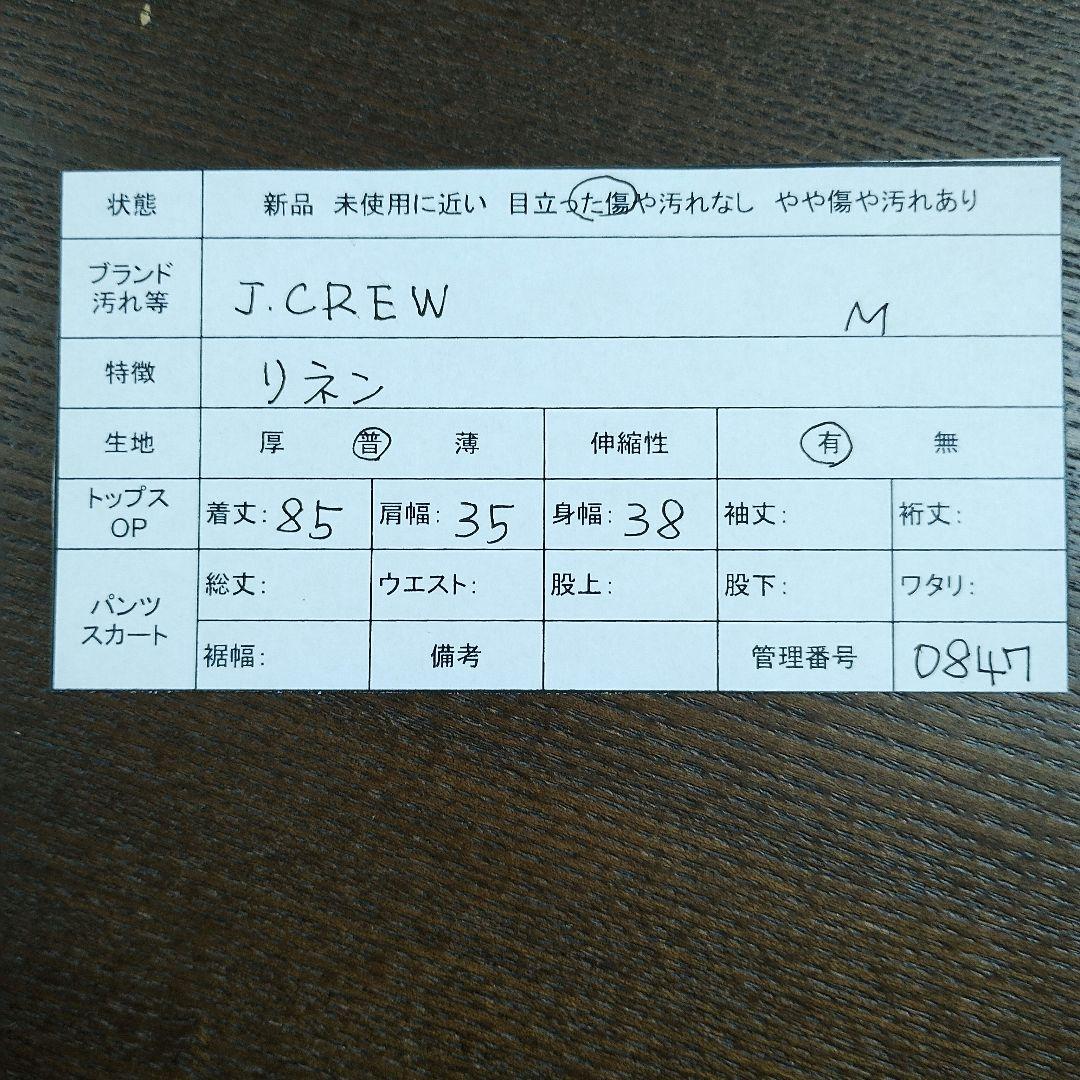 状態 新品 未使用に近い 目立った傷や汚れなし やや傷や汚れあり
ブランド
汚れ等 J.CREW M
特徴 リネン
生地 厚 普 薄 伸縮性 有 無
トップス
OP 着丈: 85 肩幅: 35 身幅: 38 袖丈: 裄丈:
パンツ
スカート 総丈: ウエスト: 股上: 股下: ワタリ:
裾幅: 備考 管理番号 0847